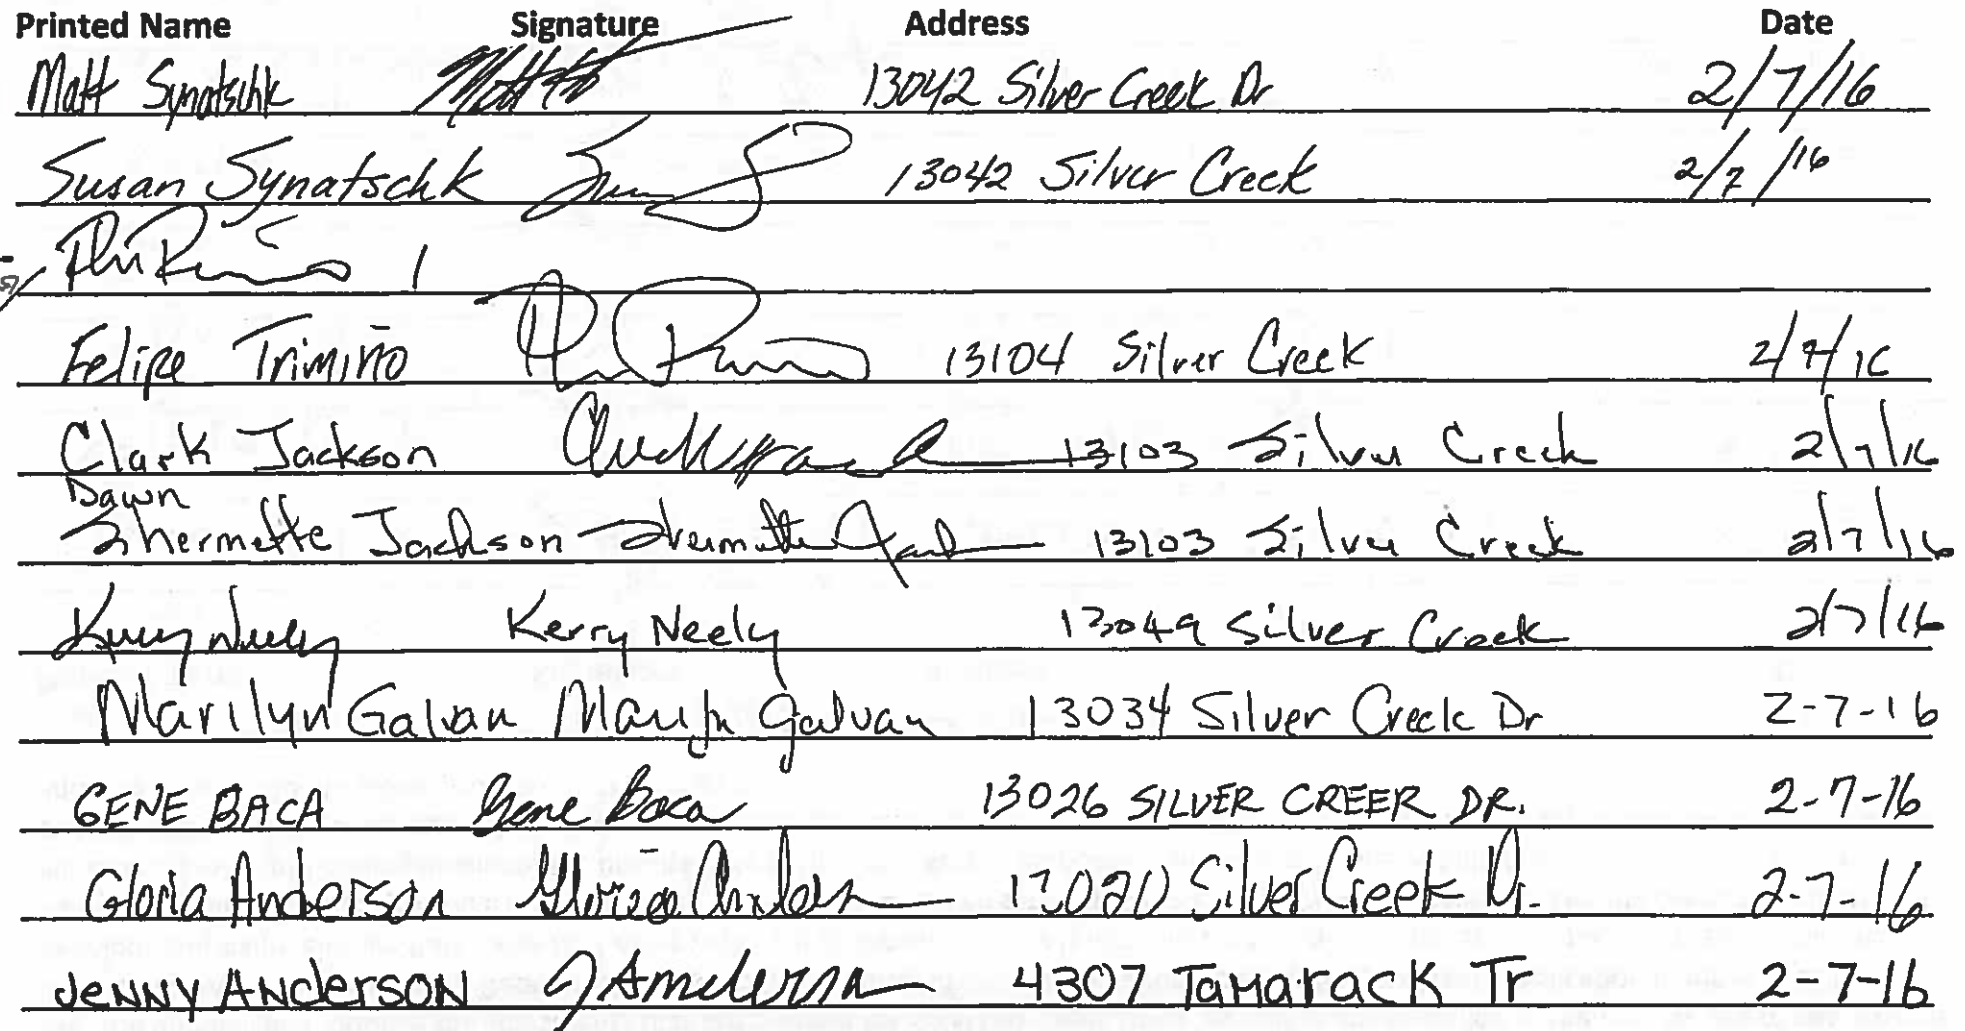 Printed Name Signature Address Date
Matt Synatschk Matt 13042 Silver Creek Dr 2/7/16
Susan Synatschk 13042 Silver Creek 2/7/16
Felipe Trimiño 13104 Silver Creek 2/7/16
Clark Jackson 13103 Silver Creek 2/7/16
Dawn
Shermette Jackson Shermette Jack 13103 Silver Creek 2/7/16
Kerry Neely Kerry Neely 13049 Silver Creek 2/7/16
Marilyn Galvan Marilyn Galvan 13034 Silver Creek Dr 2-7-16
GENE BACA Gene Baca 13026 SILVER CREEK DR. 2-7-16
Gloria Anderson Gloria Anderson 13020 Silver Creek Dr 2-7-16
JENNY ANDERSON J Anderson 4307 Tamarack Tr 2-7-16